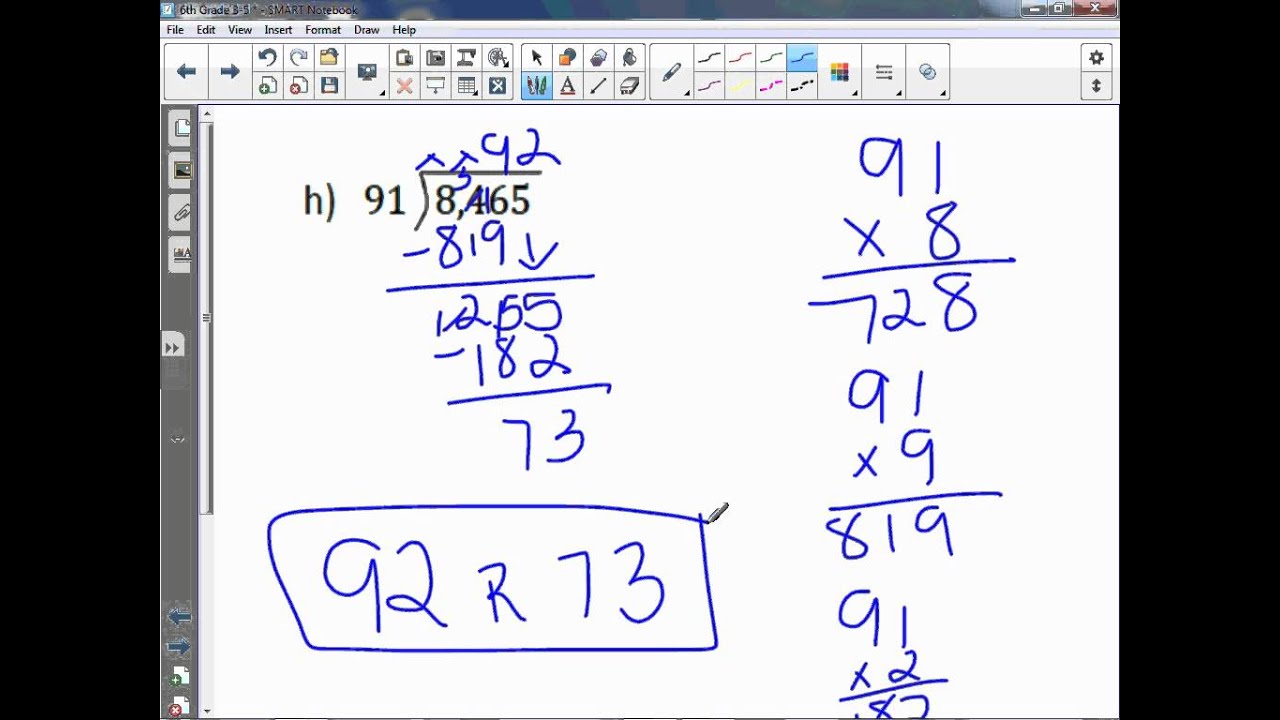 6th Grade 3-5 * - SMART Notebook
File Edit View Insert Format Draw Help
92
h) 91 8,465
-819
255
-182
73
92 R 73
91
x 8
728
91
x 9
819
91
x 2
182